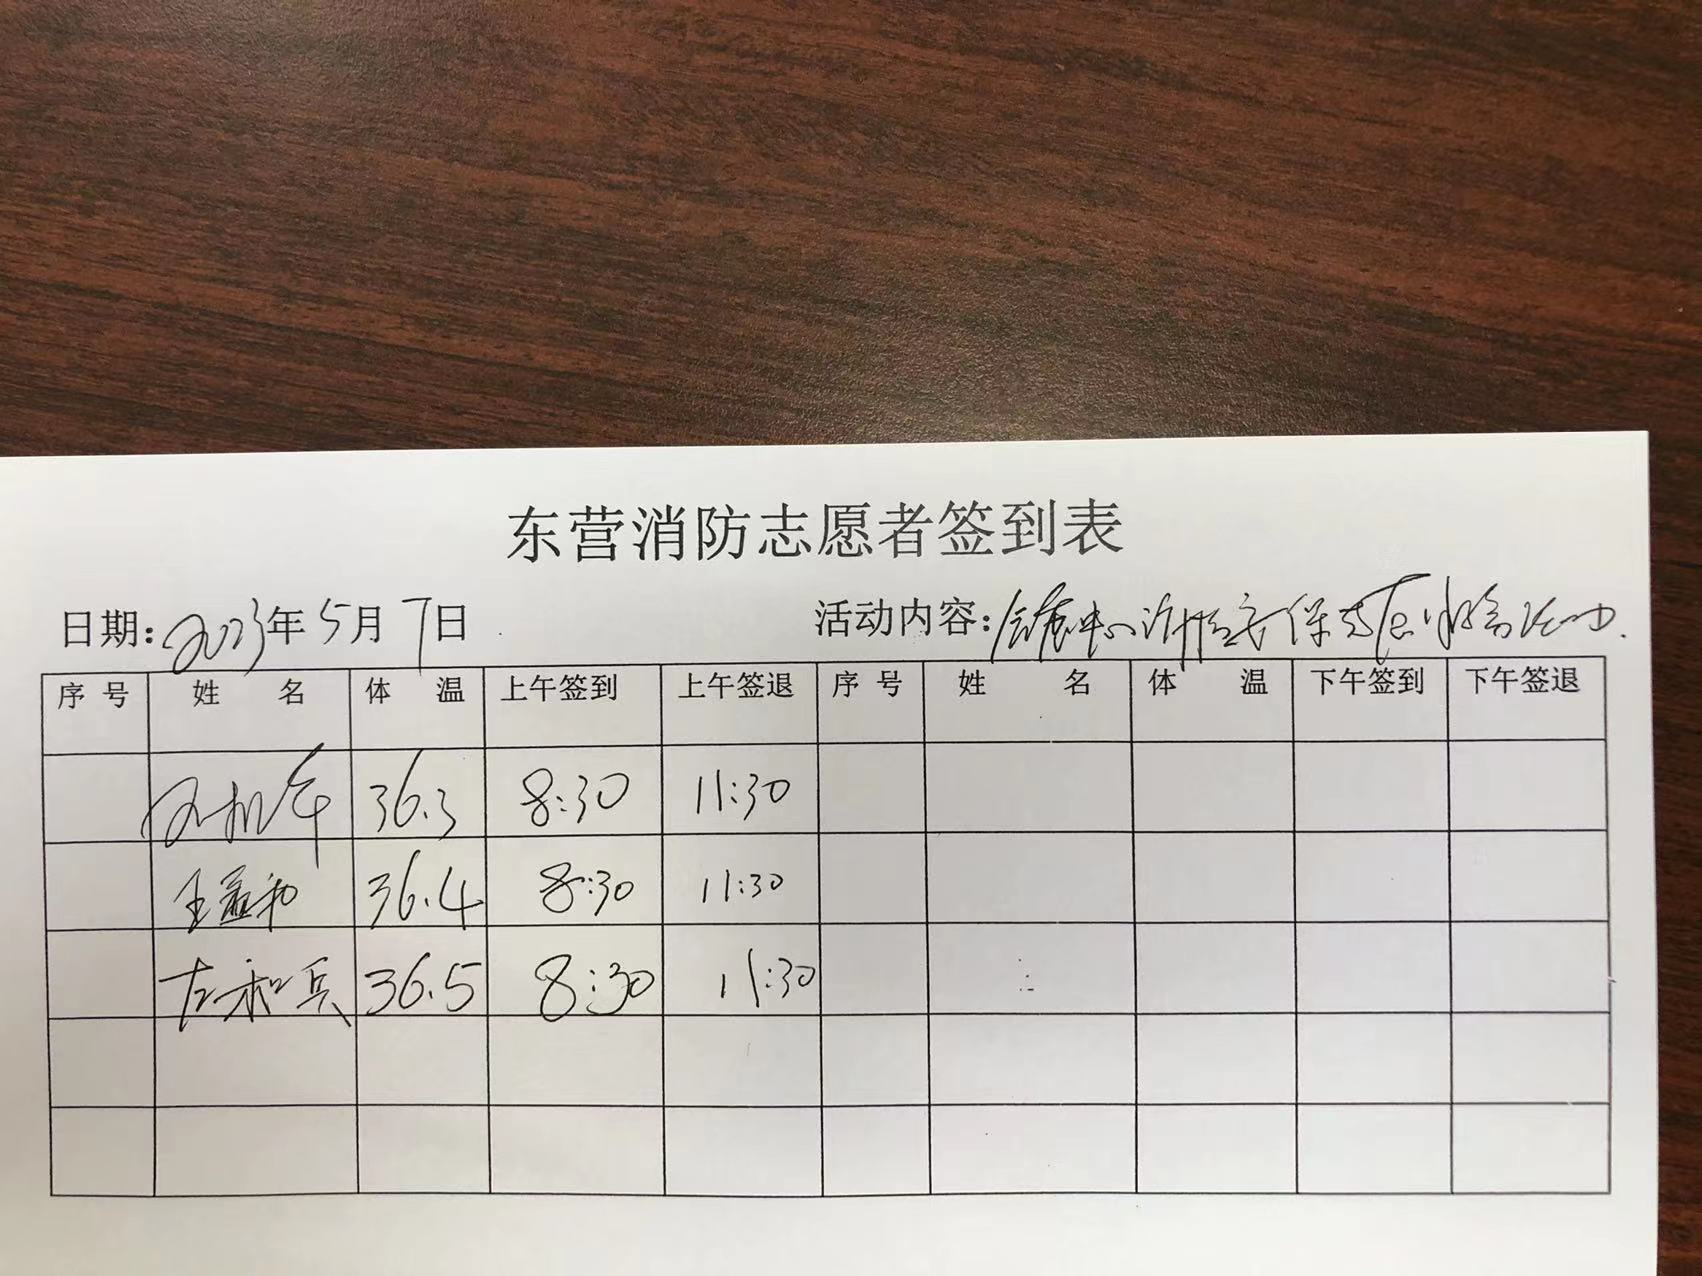 东营消防志愿者签到表
日期:2023年5月7日 活动内容:会展中心
序号 姓名 体温 上午签到 上午签退 序号 姓名 体温 下午签到 下午签退
36.3 8:30 11:30
王益和 36.4 8:30 11:30
左和兵 36.5 8:30 11:30